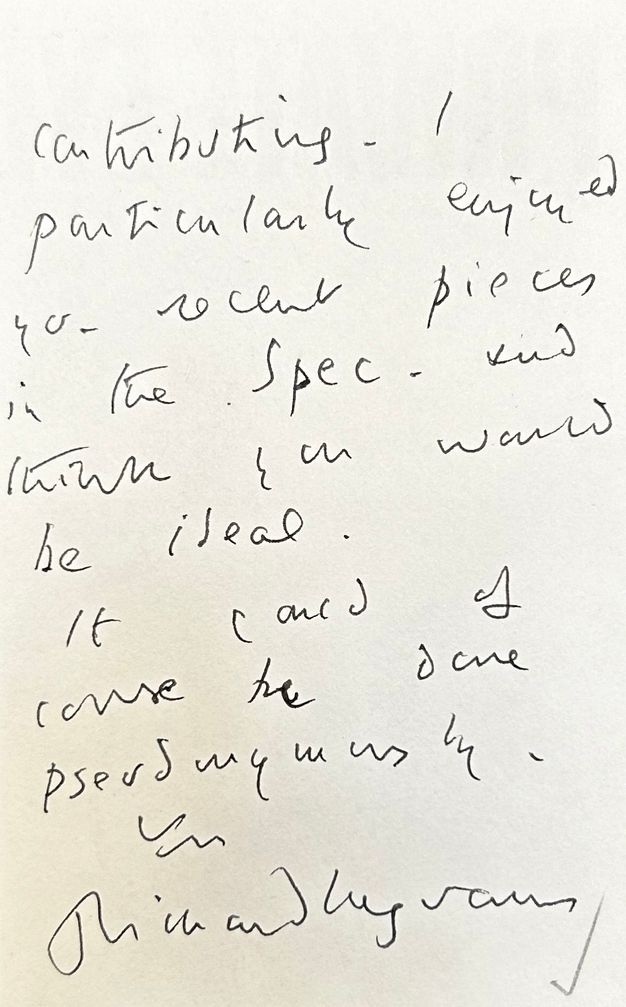 contributing. I
particularly enjoyed
your recent pieces
in the Spec. and
think you would
be ideal.
It could of
course be done
pseudonymously.
Yrs
Richard Ingrams